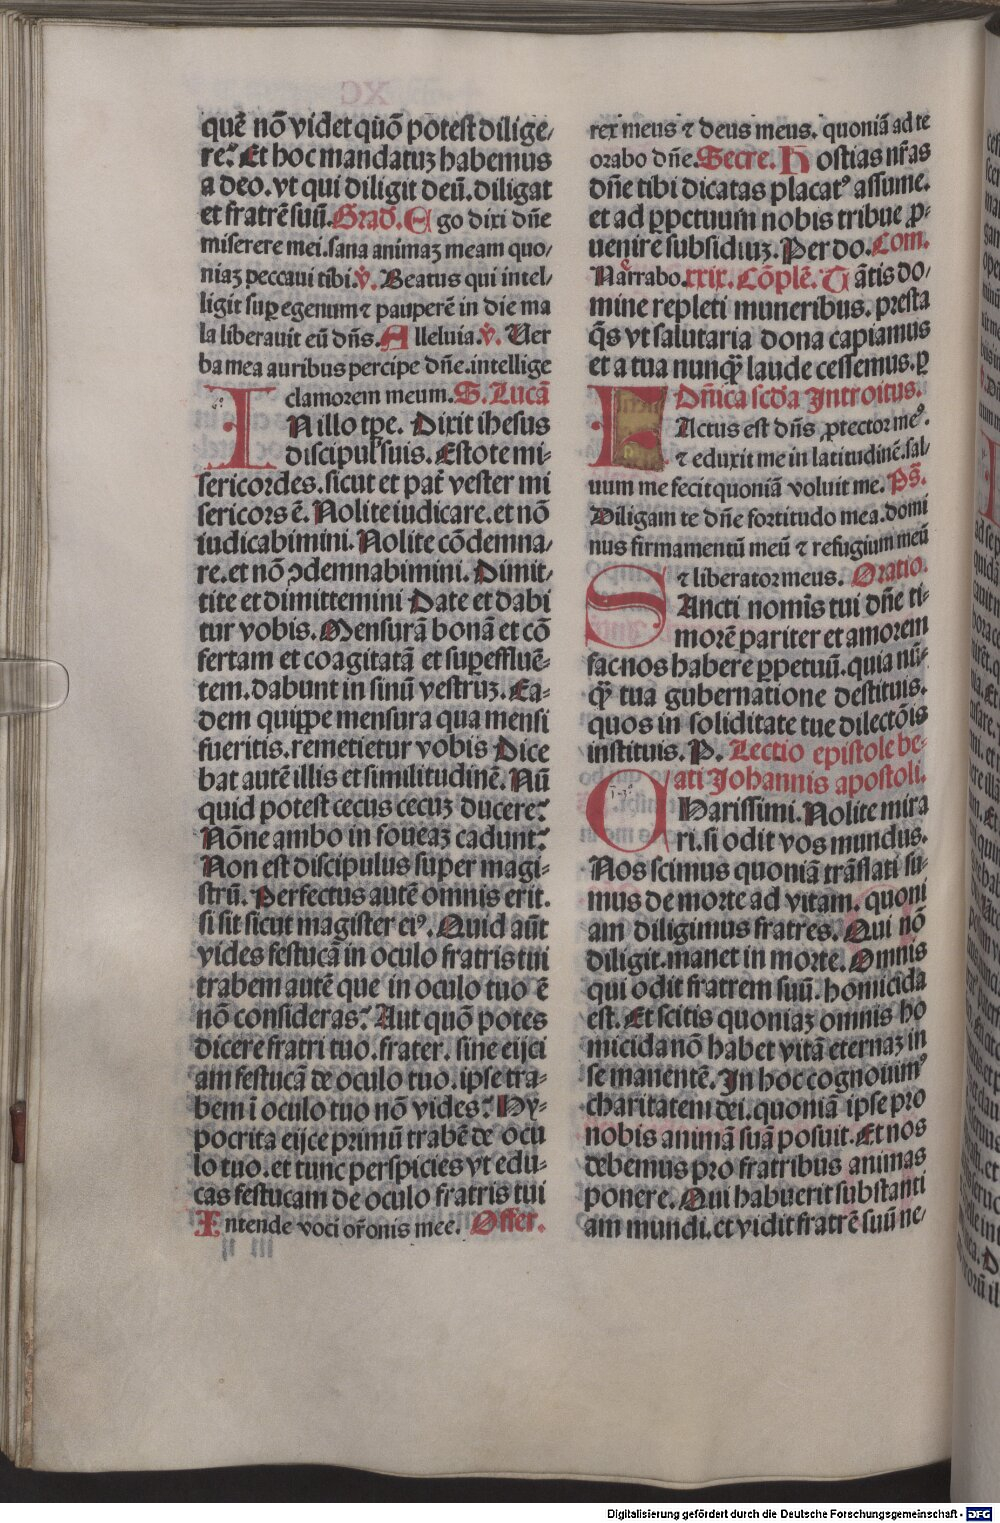 quē nō videt quō potest dilige/
re? Et hoc mandatuꝫ habemus
a deo. vt qui diligit deū. diligat
et fratrē suū. Grad̄. Ego dixi dn̄e
miserere mei. sana animaꝫ meam quo/
niaꝫ peccaui tibi. v̄. Beatus qui intel/
ligit suꝑ egenum ⁊ pauperē in die ma
la liberauit eū dn̄s. Alleluia. v̄. Uer
ba mea auribus percipe dn̄e. intellige
clamorem meum. S. Lucā
IN illo tp̄e. Dixit ihesus
discipulꝭ suis. Estote mi-
sericordes. sicut et pat̄ vester mi
sericors ē. Nolite iudicare. et nō
iudicabimini. Nolite cōdemna/
re. et nō ↄdemnabimini. Dimit/
tite et dimittemini Date et dabi
tur vobis. Mensurā bonā et cō
fertam et coagitatā et suꝑeffluē-
tem. dabunt in sinū vestruꝫ. Ea-
dem quippe mensura qua mensi
fueritis. remetietur vobis Dice
bat autē illis et similitudinē. Nū
quid potest cecus cecuꝫ ducere?
Nōne ambo in foueaꝫ cadunt?
Non est discipulus super magi-
strū. Perfectus autē omnis erit.
si sit sicut magister eiꝰ. Quid aūt
vides festucā in oculo fratris tui
trabem autē que in oculo tuo ē
nō consideras? Aut quō potes
dicere fratri tuo. frater. sine eijci
am festucā de oculo tuo. ipse tra-
bem ī oculo tuo nō vides? Hy-
pocrita eijce primū trabē de ocu
lo tuo. et tunc perspicies vt edu-
cas festucam de oculo fratris tui
Intende voci or̄onis mee. Offer.
rex meus ⁊ deus meus. quoniā ad te
orabo dn̄e. Secre. Hostias nr̄as
dn̄e tibi dicatas placatꝰ assume.
et ad ꝑpetuum nobis tribue ꝓ-
uenire subsidiuꝫ. Per do. Com.
Narrabo. xxix. Cōplē. Uātis do/
mine repleti muneribus. presta
q̄s vt salutaria dona capiamus
et a tua nunqꝫ̄ laude cessemus. ꝑ
Dn̄ica scd̄a Introitus.
FActus est dn̄s ꝓtector meꝰ.
⁊ eduxit me in latitudinē. sal/
uum me fecit quoniā voluit me. Ps̄.
Diligam te dn̄e fortitudo mea. domi
nus firmamentū meū ⁊ refugium meū
⁊ liberator meus. Oratio.
SAncti nomīs tui dn̄e ti-
morē pariter et amorem
fac nos habere ꝑpetuū. quia nū-
qꝫ̄ tua gubernatione destituis.
quos in soliditate tue dilectōis
instituis. P. Lectio epistole be-
ati Johannis apostoli.
CHarissimi. Nolite mira
ri. si odit vos mundus.
Nos scimus quoniā trāslati su-
mus de morte ad vitam. quoni
am diligimus fratres. Qui nō
diligit. manet in morte. Omnis
qui odit fratrem suū. homicida
est. Et scitis quoniaꝫ omnis ho
micida nō habet vitā eternaꝫ in
se manentē. In hoc cognouimꝰ
charitatem dei. quoniā ipse pro
nobis animā suā posuit. Et nos
debemus pro fratribus animas
ponere. Qui habuerit substanti
am mundi. et vidit fratrē suū ne/
Digitalisierung gefördert durch die Deutsche Forschungsgemeinschaft - DFG